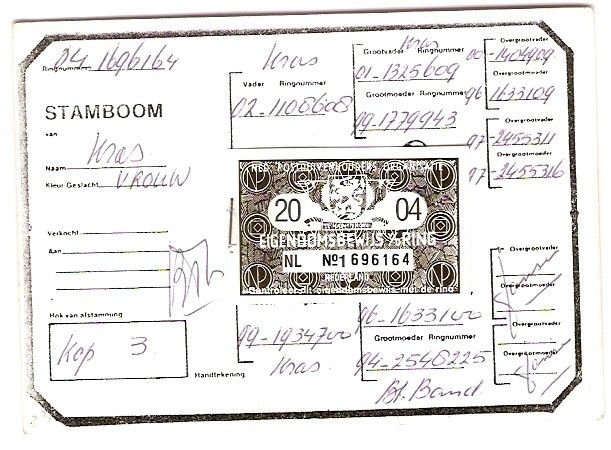 Ringnummer 04-1696164
STAMBOOM
van
Naam Kras
Kleur Geslacht VROUW
Verkocht
Aan
Hok van afstamming
Kop 3
Handtekening
Kras
Vader Ringnummer
02-1108608
Kras
Grootvader Ringnummer
01-1325609
Grootmoeder Ringnummer
99-1779943
Overgrootvader
00-1404909
Overgrootmoeder
96 1633109
Overgrootvader
97-2455311
Overgrootmoeder
97-2455316
20 04
EIGENDOMSBEWIJS RING
NL No 1696164
NEDERLAND
Controleer dit eigendomsbewijs met de ring
99-1934700
Kras
96-1633100
Grootmoeder Ringnummer
94-2546225
Bl. Band
Overgrootvader
Overgrootmoeder
Overgrootvader
Overgrootmoeder